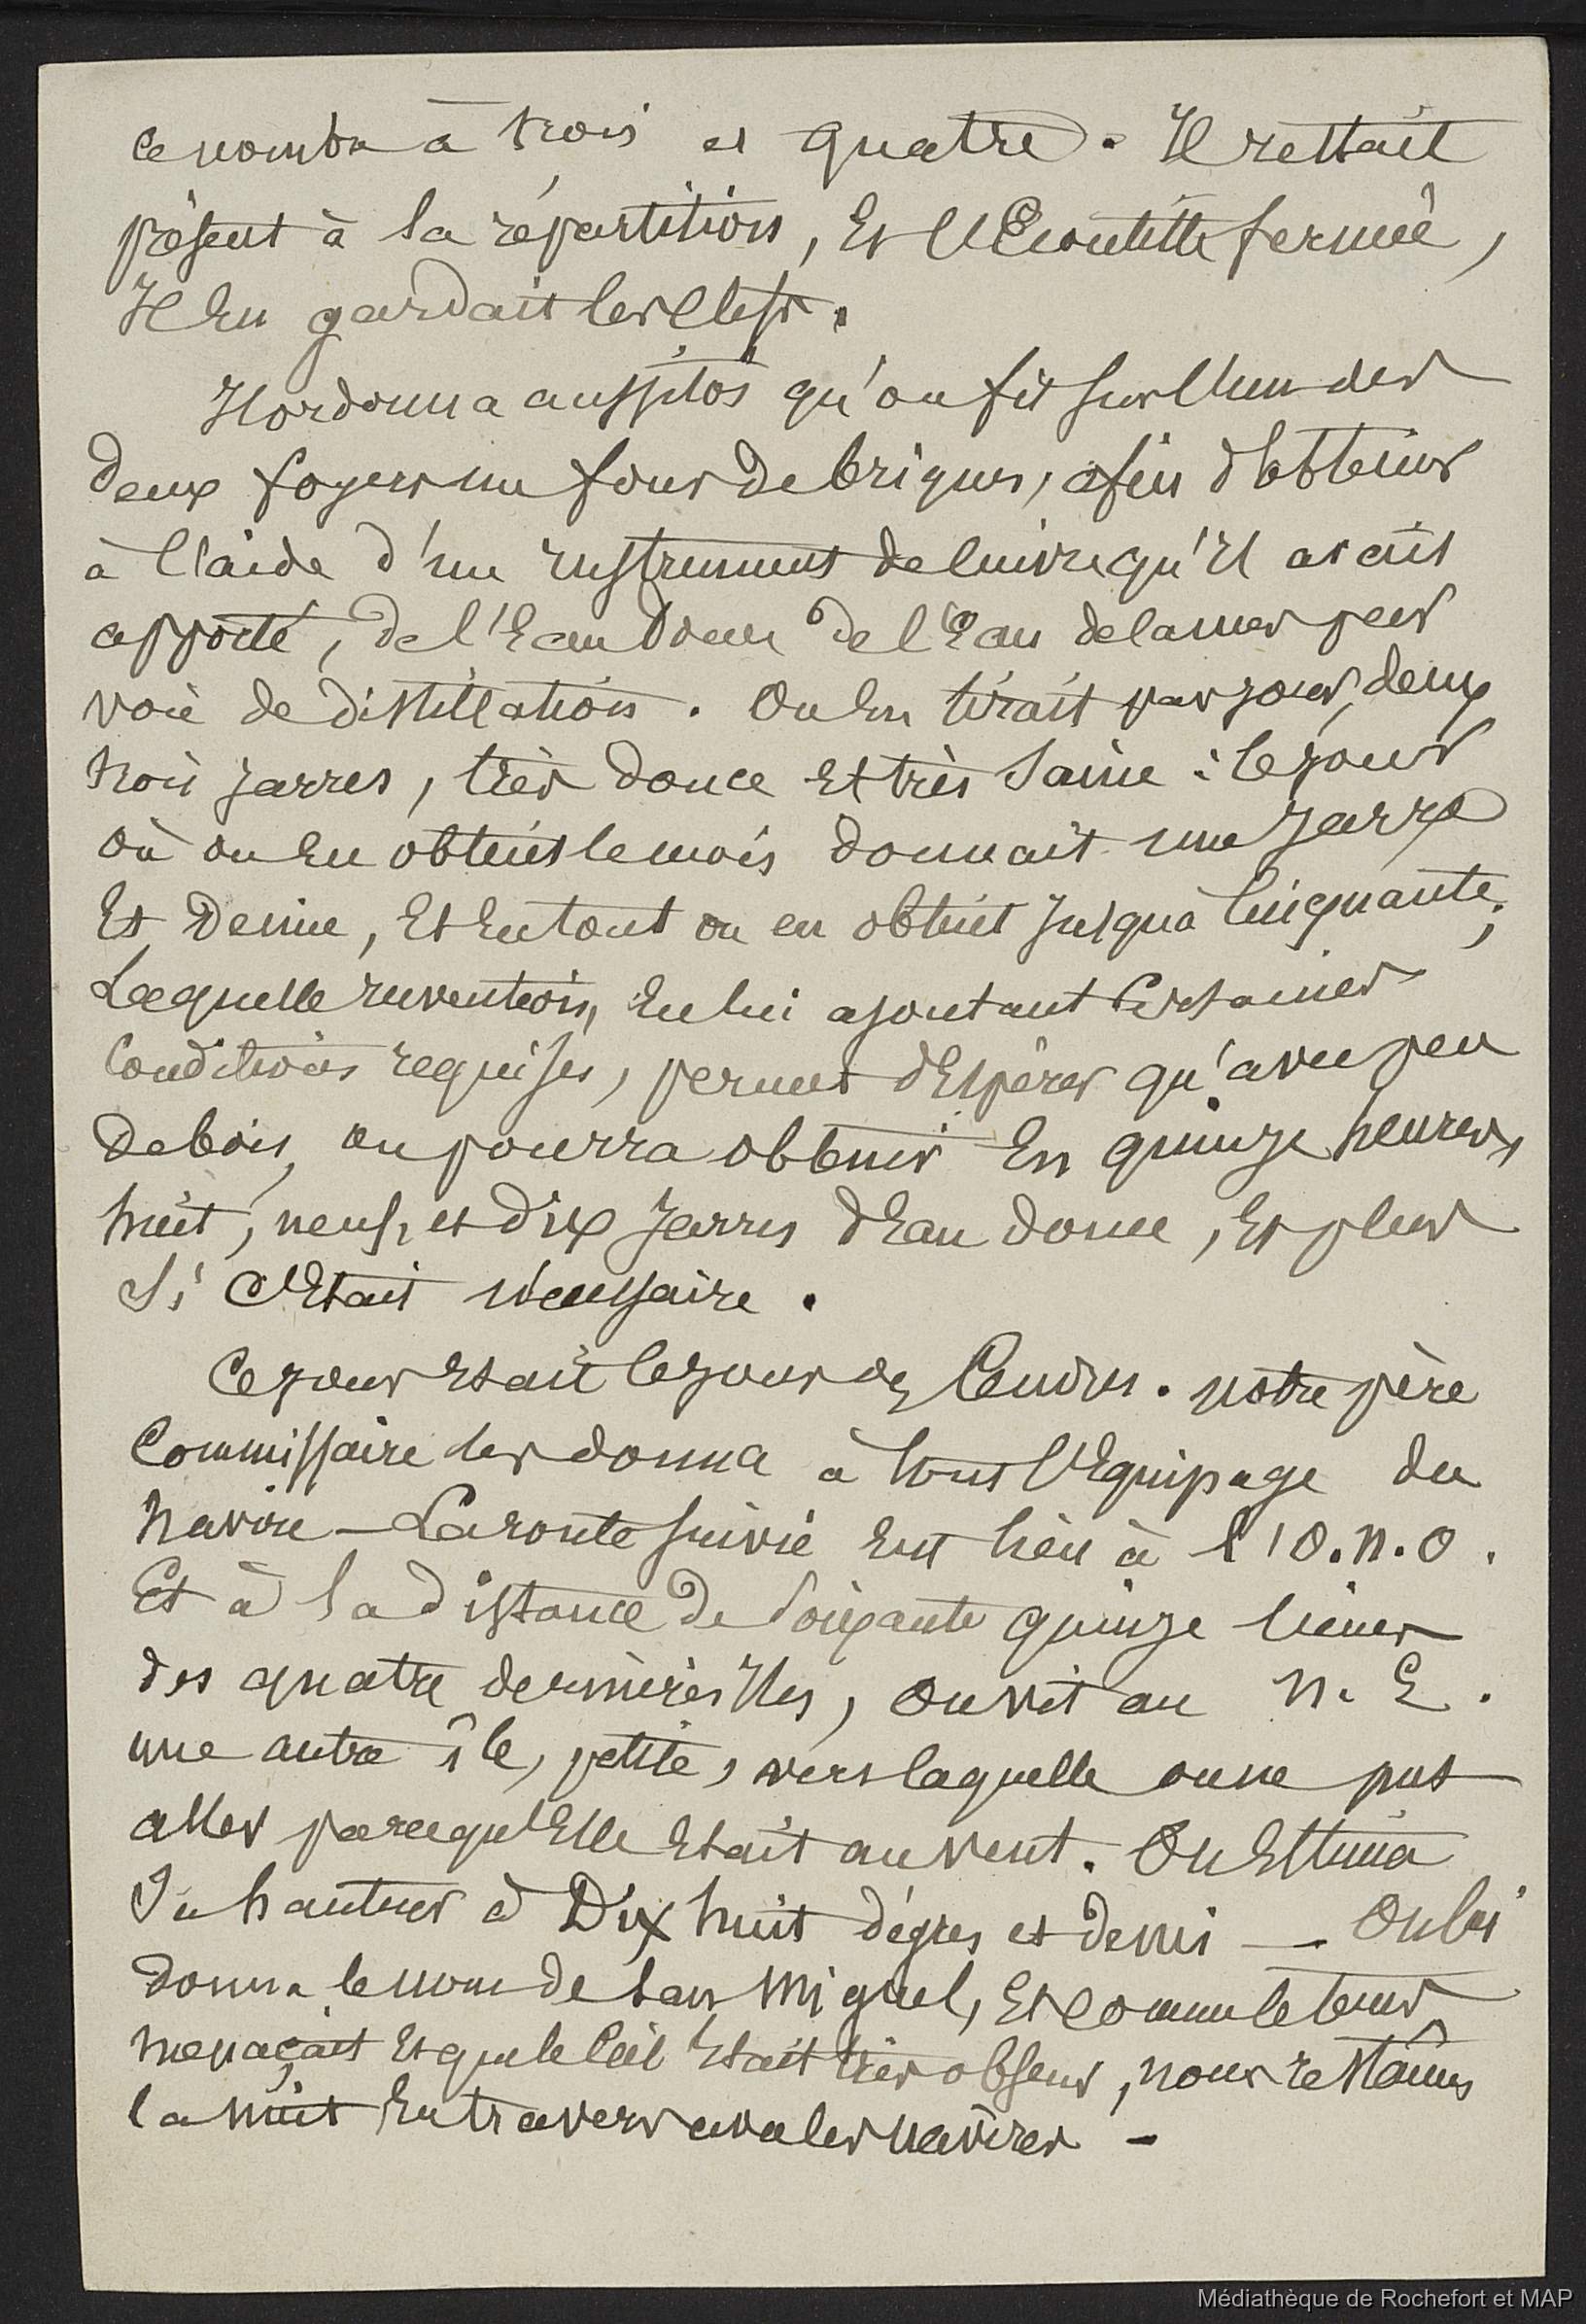 ce nombre à trois et quatre. Il restait
présent à la répartition, Et l'Ecoutille fermée,
Il En gardait les Clefs.
Il ordonna aussitôt qu'on fit sur l'un des
deux foyers un four de briques, afin d'obtenir
à l'aide d'un instrument de cuivre qu'il avait
apporté, de l'Eau douce de l'Eau de la mer par
voie de distillation. On En tirait par jour, deux
trois jarres, très douce Et très saine : le jour
où on En obtint le mois donnait une jarre
Et Demie, Et En tout on en obtint jusqu'à Cinquante;
Laquelle invention, En lui ajoutant Certaines
Conditions requises, permet d'Espérer qu'avec peu
de bois, on pourra obtenir En quinze heures,
huit, neuf, et dix jarres d'Eau douce, Et plus
Si C'Etait nécessaire.
Ce jour Etait le jour des Cendres. notre père
Commissaire les donna à tout l'Equipage du
navire – La route suivie Eut lieu à l'O.N.O.
Et à la distance de soixante quinze lieues
des quatre dernières Iles, on vit au N.E.
une autre île, petite, vers laquelle on ne put
aller parcequ'Elle Etait au vent. On Estima
sa hauteur à Dix huit dégrés et demi — On lui
donna le nom de San Miguel, Et comme le tems
menaçait Et que le Ciel Etait très obscur, nous restâmes
la nuit En travers avec les navires –
Médiathèque de Rochefort et MAP